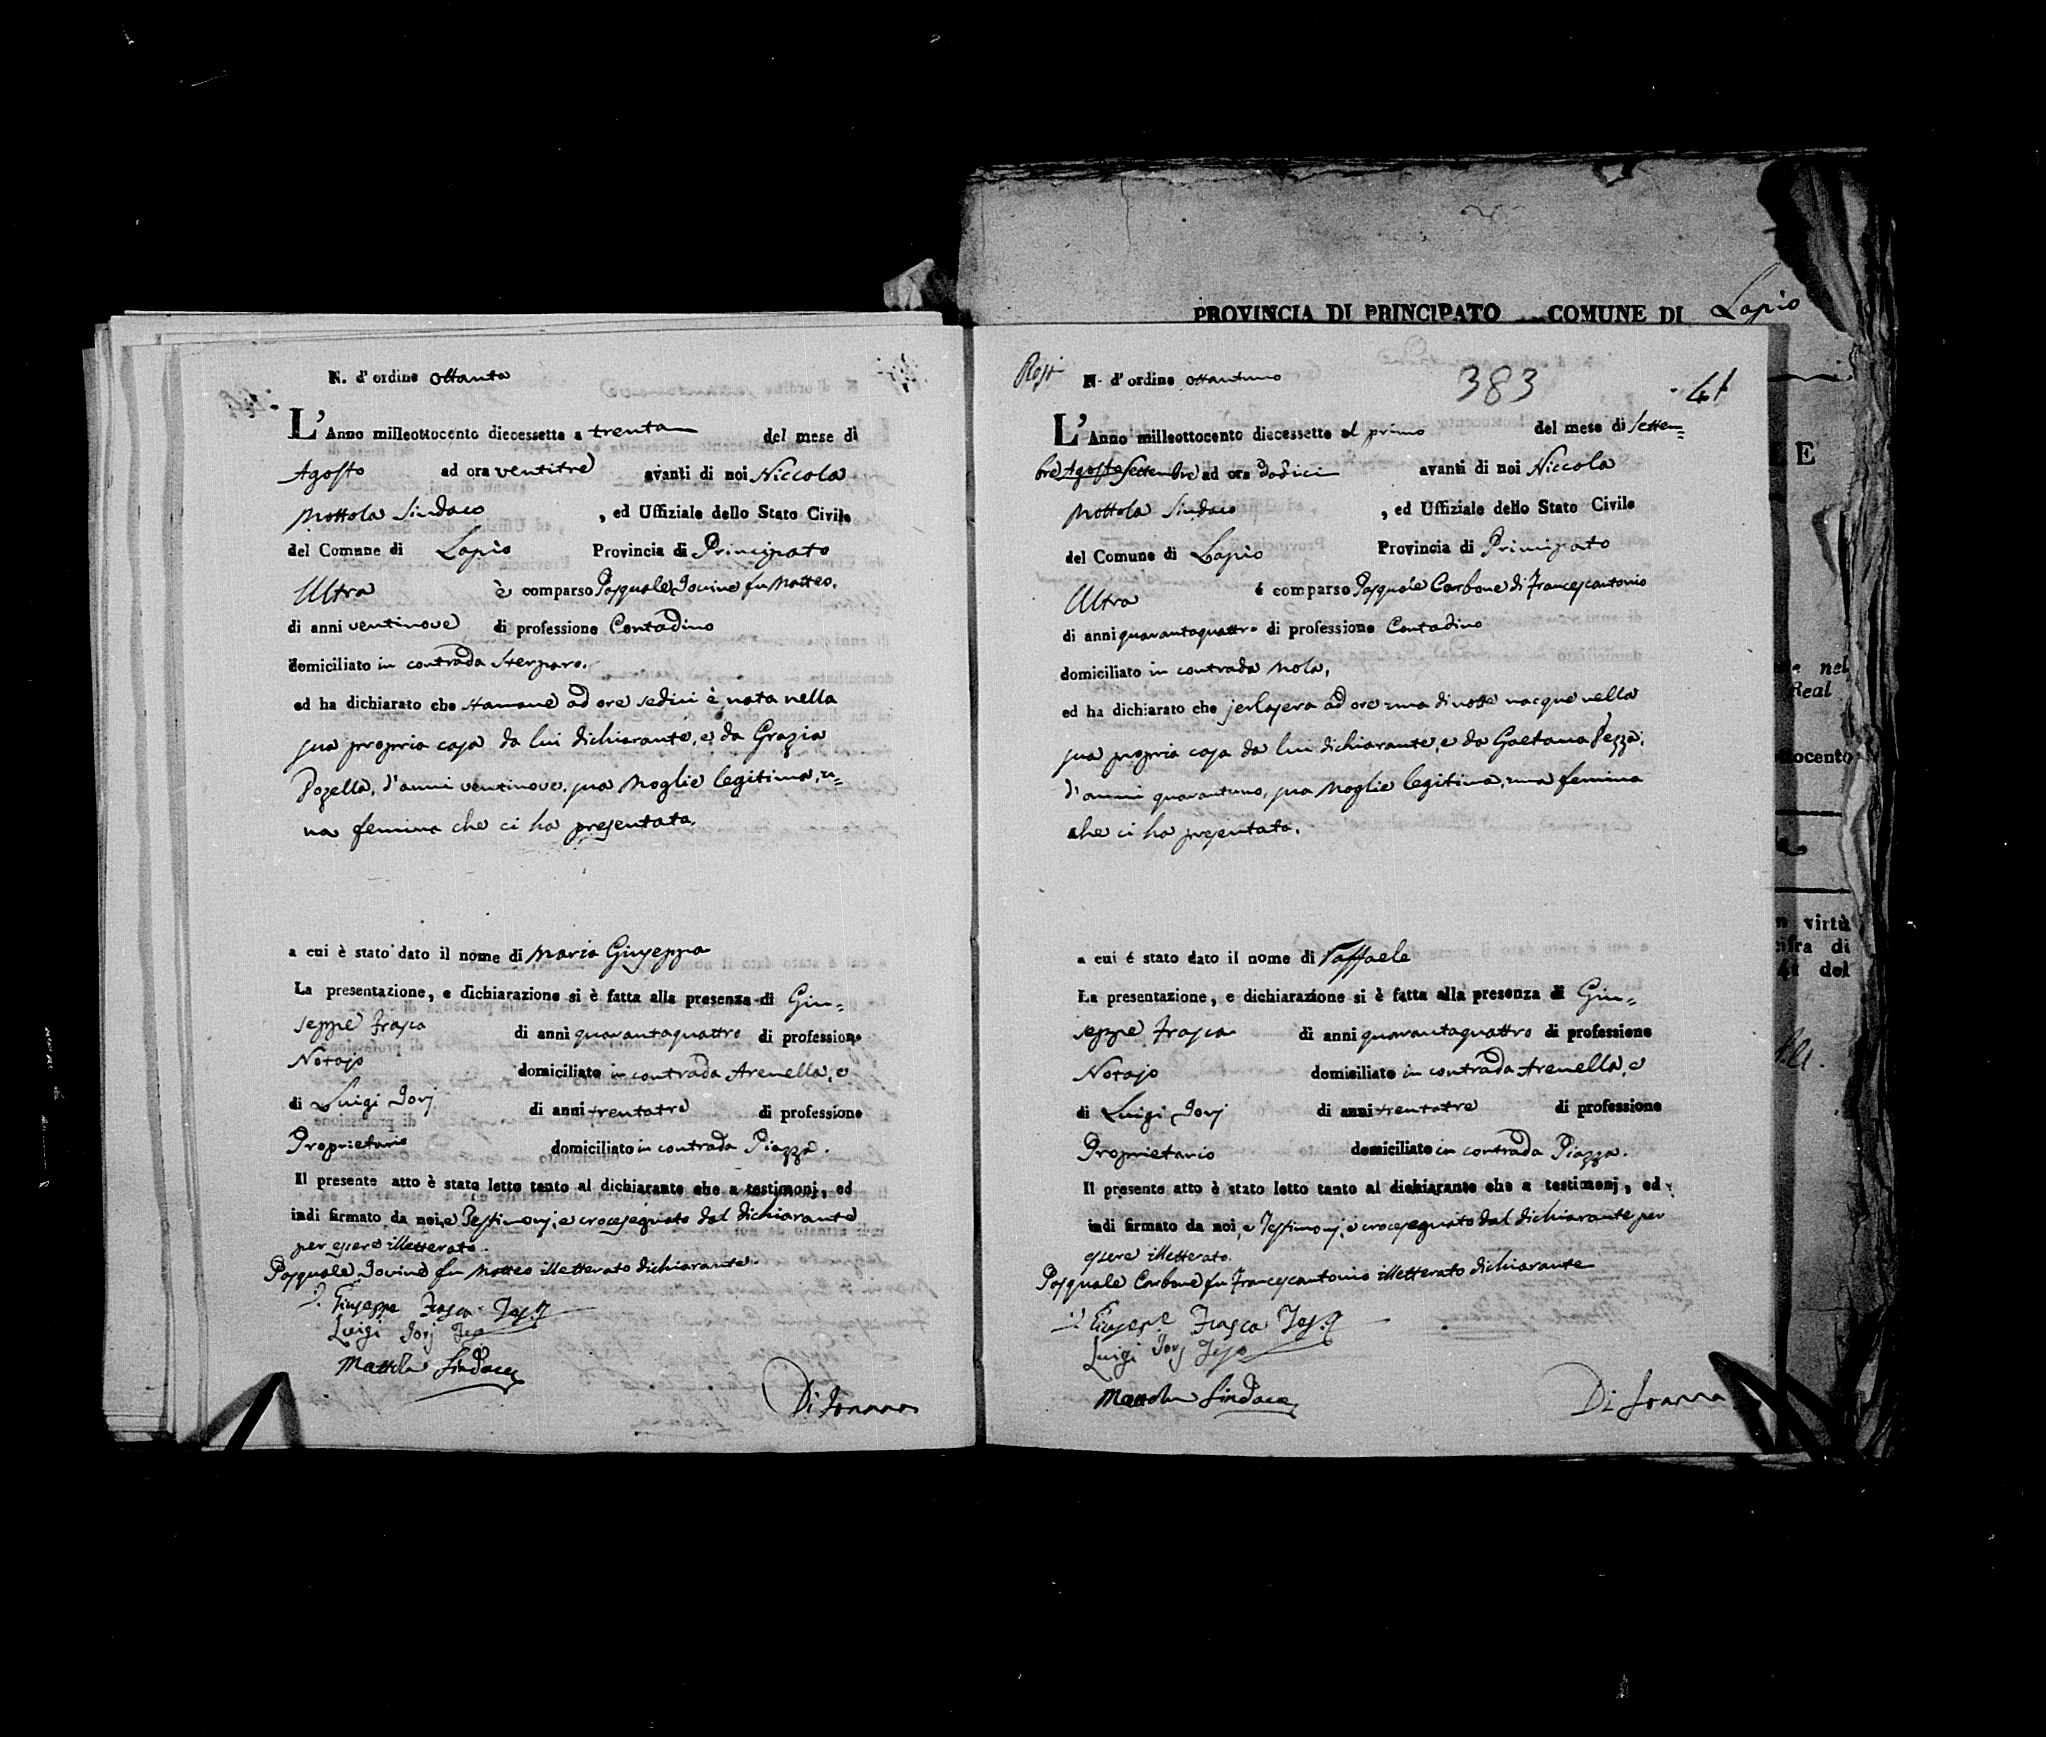 PROVINCIA DI PRINCIPATO COMUNE DI Lapio
N. d'ordine Ottanta
L'Anno milleottocento diecessette a trenta del mese di
Agosto ad ora ventitre avanti di noi Niccola
Mottola Sindaco , ed Uffiziale dello Stato Civile
del Comune di Lapio Provincia di Principato
Ultra è comparso Pasquale Jovine fu Matteo,
di anni ventinove di professione Contadino
domiciliato in contrada Sterparo,
ed ha dichiarato che stamane ad ore sedici è nata nella
sua propria casa da lui dichiarante, e da Grazia
d'anni ventinove, sua Moglie legitima, u=
na femina che ci ha presentata,
a cui è stato dato il nome di Maria Giuseppa
La presentazione, e dichiarazione si è fatta alla presenza di Giu=
seppe Frasca di anni quarantaquattro di professione
Notajo domiciliato in contrada Arenella, e
di Luigi Jorj di anni trentatre di professione
Proprietario domiciliato in contrada Piazza.
Il presente atto è stato letto tanto al dichiarante che a testimonj, ed
indi firmato da noi, e Testimonj, e crocesegnato dal dichiarante
per essere illetterato.
Pasquale Jovine fu Matteo illetterato dichiarante.
Giuseppe Frasca
Luigi Jorj
Mottola Sindaco
N. d'ordine ottantuno
383
41
L'Anno milleottocento diecessette al primo del mese di Settem=
bre Agosto Settembre ad ora dodici avanti di noi Niccola
Mottola Sindaco , ed Uffiziale dello Stato Civile
del Comune di Lapio Provincia di Principato
Ultra é comparso Pasquale Carbone di Francescantonio
di anni quarantaquattro di professione Contadino
domiciliato in contrada Mola,
ed ha dichiarato che jerlasera ad ore una di notte nacque nella
sua propria casa da lui dichiarante, e da Gaetana Pezza,
d'anni quarantuno, sua Moglie legitima, una femina
che ci ha presentata,
a cui é stato dato il nome di Raffaele
La presentazione, e dichiarazione si è fatta alla presenza di Giu=
seppe Frasca di anni quarantaquattro di professione
Notajo domiciliato in contrada Arenella, e
di Luigi Jorj di anni trentatre di professione
Proprietario domiciliato in contrada Piazza.
Il presente atto è stato letto tanto al dichiarante che a testimonj, ed
indi firmato da noi, e Testimonj, e crocesegnato dal dichiarante per
essere illetterato.
Pasquale Carbone fu Francescantonio illetterato dichiarante
Giuseppe Frasca
Luigi Jorj
Mottola Sindaco
E
nel
Real
ttocento
virtù
cifra di
del